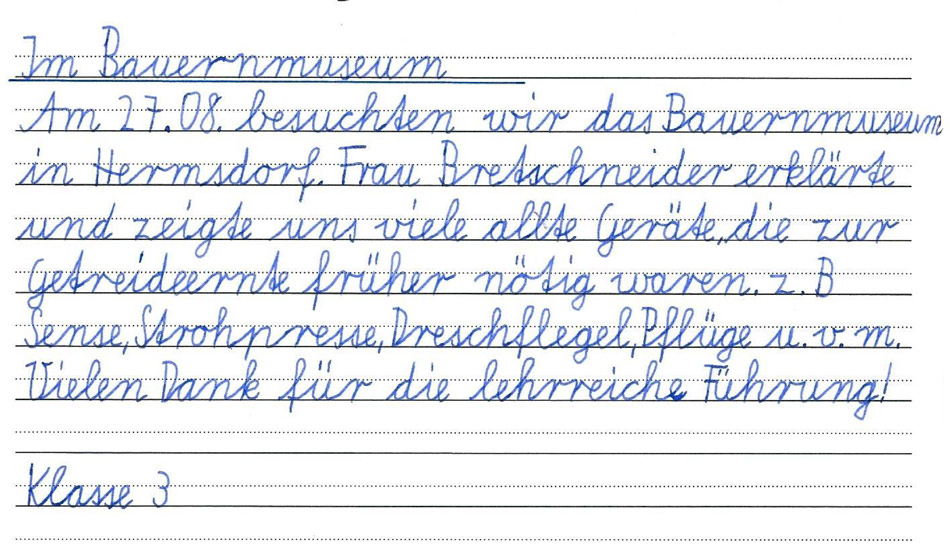 Im Bauernmuseum
Am 27.08. besuchten wir das Bauernmuseum
in Hermsdorf. Frau Bretschneider erklärte
und zeigte uns viele allte Geräte, die zur
Getreideernte früher nötig waren. z. B
Sense, Strohpresse, Dreschflegel, Pflüge u. v. m.
Vielen Dank für die lehrreiche Führung!
Klasse 3